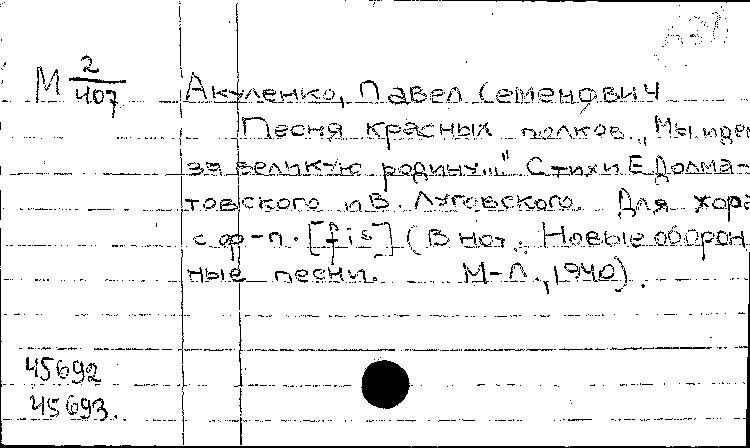 М 2/407
Акуленко, Павел Семенович
Песня красных полков. „Мы идем
за великую родину..." Стихи Е Долма-
товского и В. Луговского. Для хора
с ф-п. [fis] (В нот.: Новые оборон
ные песни. М-Л., 1940).
45692
45693.